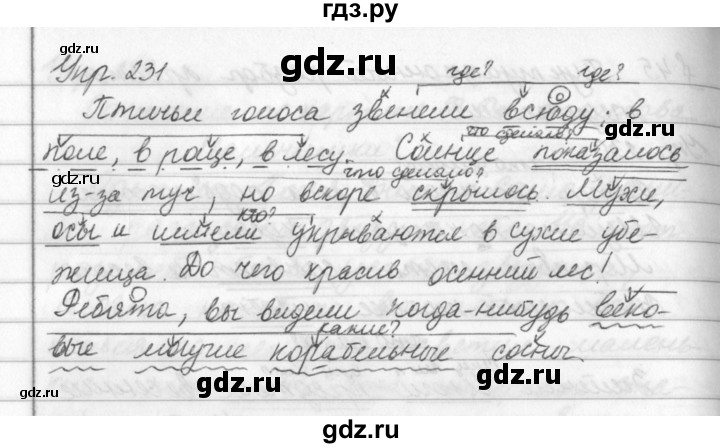 гдз.ру
gdz.ru gdz.ru
Упр. 231 где? где?
Птичьи голоса звенели всюду: в
что сделало?
поле, в роще, в лесу. Солнце показалось
что сделало?
из-за туч, но вскоре скрылось. Мухи,
кто?
осы и шмели укрываются в сухие убе-
gdz.ru gdz.ru
жища. До чего красив осенний лес!
Ребята, вы видели когда-нибудь веко-
какие?
вые могучие корабельные сосны.
gdz.ru gdz.ru